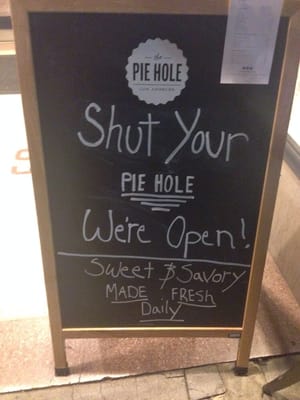 the
PIE HOLE
LOS ANGELES
Shut Your
PIE HOLE
We're Open!
Sweet & Savory
MADE FRESH
Daily